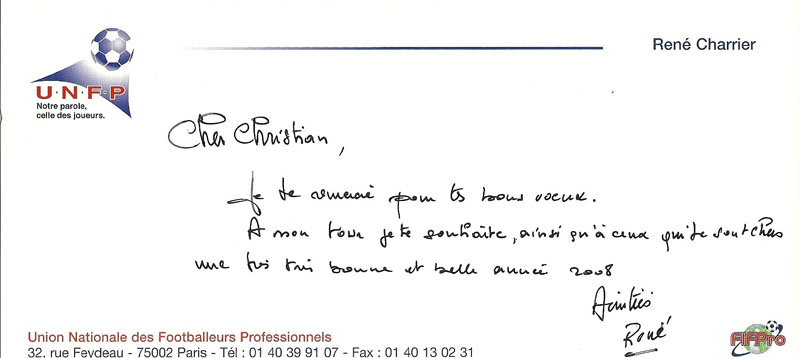 U·N·F·P
Notre parole,
celle des joueurs.
René Charrier
Cher Christian,
Je te remercie pour tes bons voeux.
A mon tour je te souhaite, ainsi qu'à ceux qui te sont chers
une très très bonne et belle année 2008
Amitiés
René
Union Nationale des Footballeurs Professionnels
32, rue Feydeau - 75002 Paris - Tél : 01 40 39 91 07 - Fax : 01 40 13 02 31
FIFPro